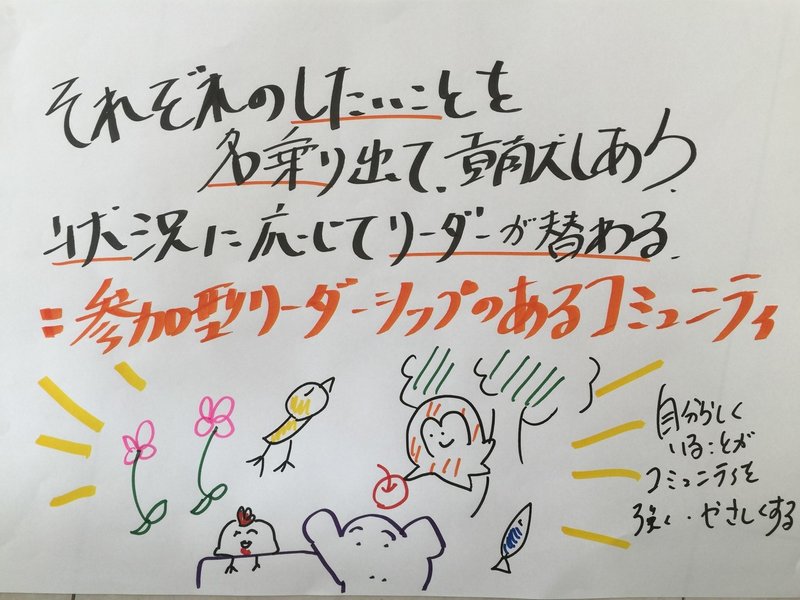 それぞれのしたいことを
名乗り出て、貢献しあう、
状況に応じてリーダーが替わる。
=参加型リーダーシップのあるコミュニティ
自分らしく
いることが
コミュニティを
強く・やさしくする